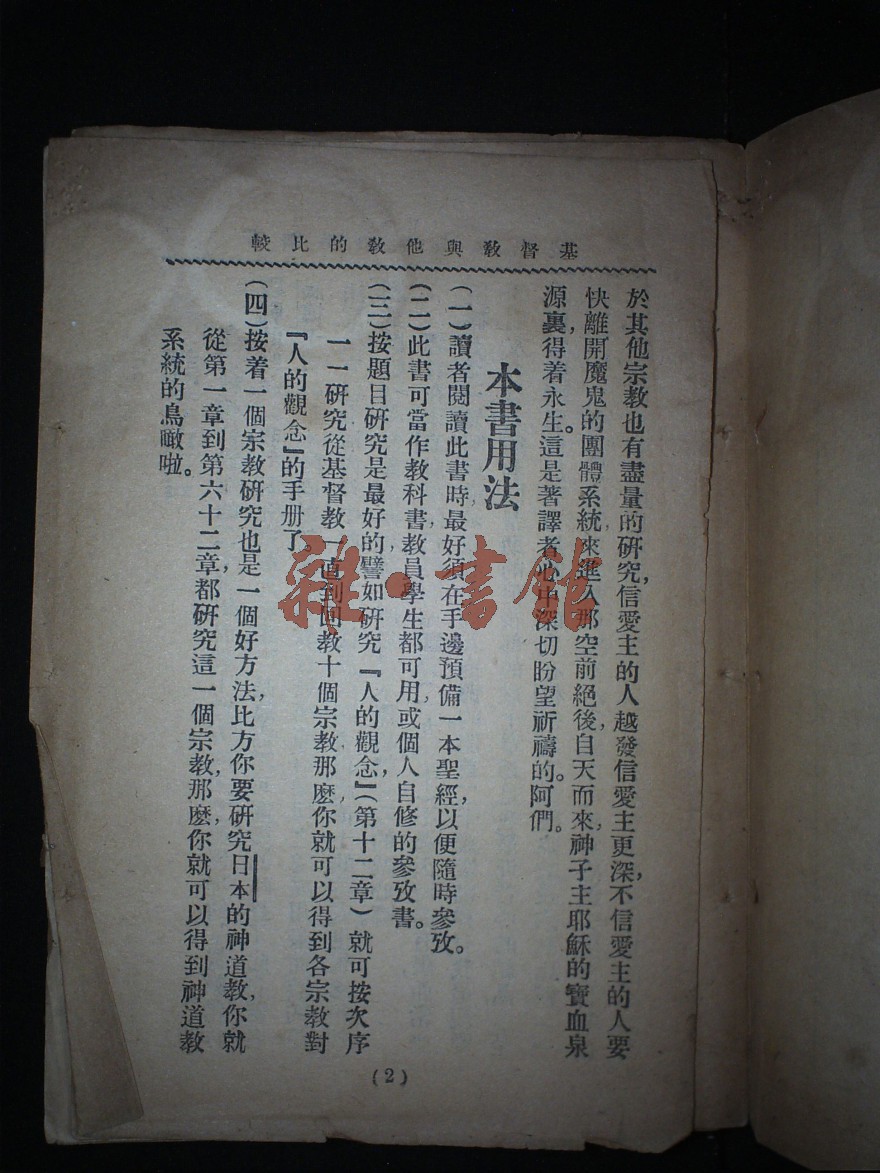 基督敎與他敎的比較
於其他宗教也有盡量的研究,信愛主的人越發信愛主更深,不信愛主的人要
快離開魔鬼的團體系統,來進入那空前絕後,自天而來,神子主耶穌的寶血泉
源裏,得着永生。這是著譯者心中深切盼望祈禱的。阿們。
本書用法
(一)讀者閱讀此書時,最好須在手邊預備一本聖經,以便隨時參攷。
(二)此書可當作教科書,教員學生都可用,或個人自修的參攷書。
(三)按題目研究是最好的,譬如研究『人的觀念』,(第十二章)就可按次序
一一研究從基督教一直到回教十個宗教,那麽你就可以得到各宗教對
『人的觀念』的手册了。
(四)按着一個宗教研究也是一個好方法,比方你要研究日本的神道教,你就
從第一章到第六十二章,都研究這一個宗教,那麽,你就可以得到神道教
系統的鳥瞰啦。
(2)
雜·書館